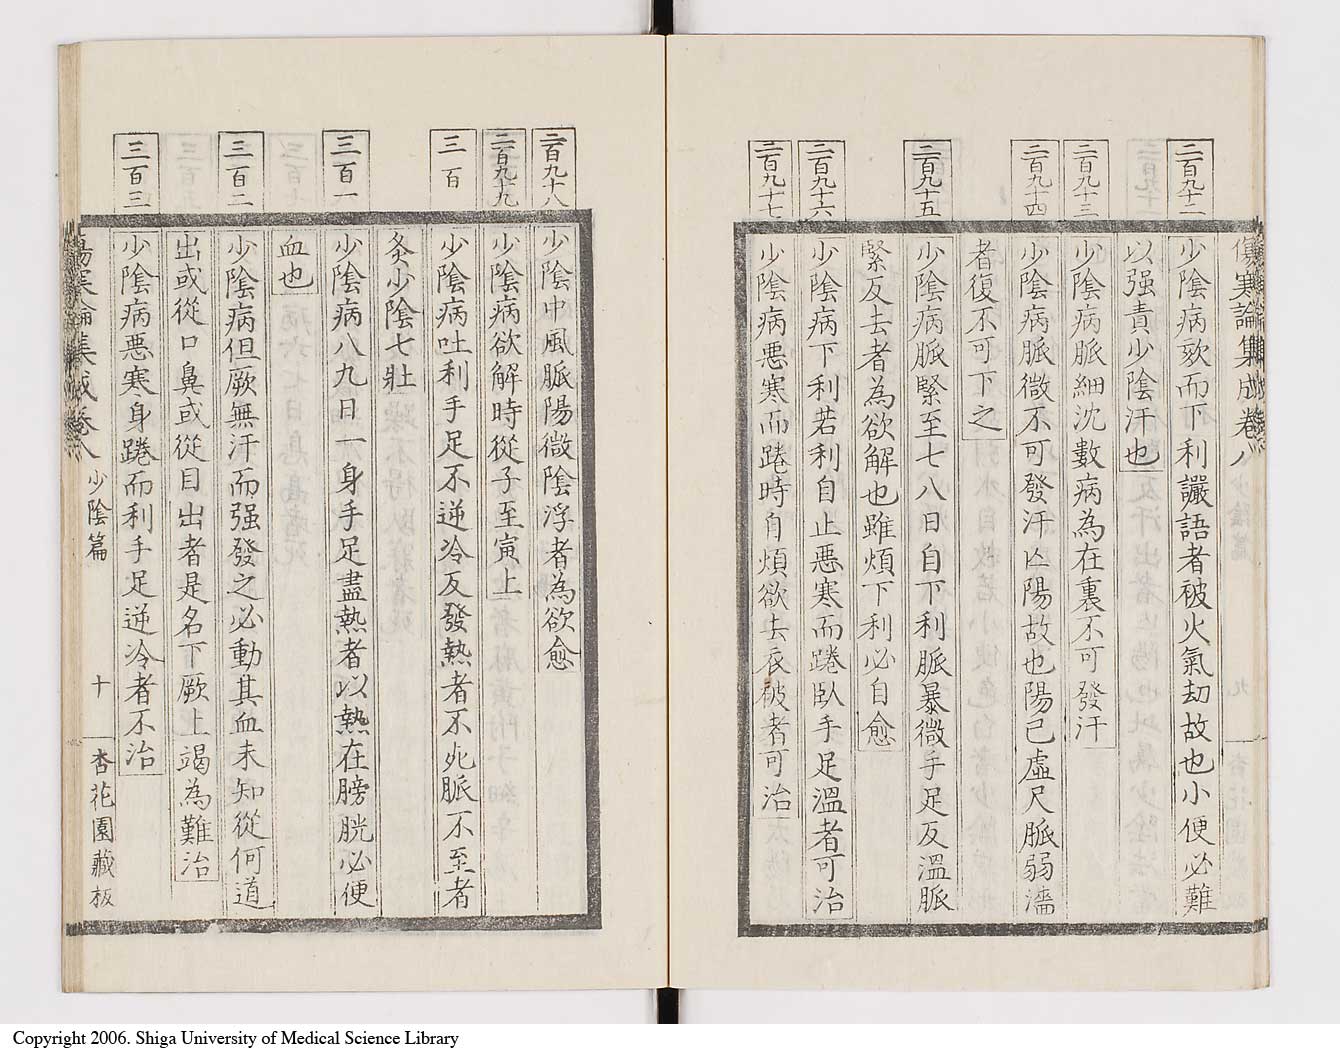 傷寒論集成卷八
二百九十二
少陰病欬而下利讝語者被火氣劫故也小便必難
以强責少陰汗也
二百九十三
少陰病脈細沈數病為在裏不可發汗
二百九十四
少陰病脈微不可發汗亾陽故也陽已虛尺脈弱濇
者復不可下之
二百九十五
少陰病脈緊至七八日自下利脈暴微手足反溫脈
緊反去者為欲解也雖煩下利必自愈
二百九十六
少陰病下利若利自止惡寒而踡臥手足溫者可治
二百九十七
少陰病惡寒而踡時自煩欲去衣被者可治
二百九十八
少陰中風脈陽微陰浮者為欲愈
二百九十九
少陰病欲解時從子至寅上
三百
少陰病吐利手足不逆冷反發熱者不死脈不至者
灸少陰七壯
三百一
少陰病八九日一身手足盡熱者以熱在膀胱必便
血也
三百二
少陰病但厥無汗而强發之必動其血未知從何道
出或從口鼻或從目出者是名下厥上竭為難治
三百三
少陰病惡寒身踡而利手足逆冷者不治
傷寒論集成卷八 少陰篇 十 杏花園藏板
Copyright 2006. Shiga University of Medical Science Library